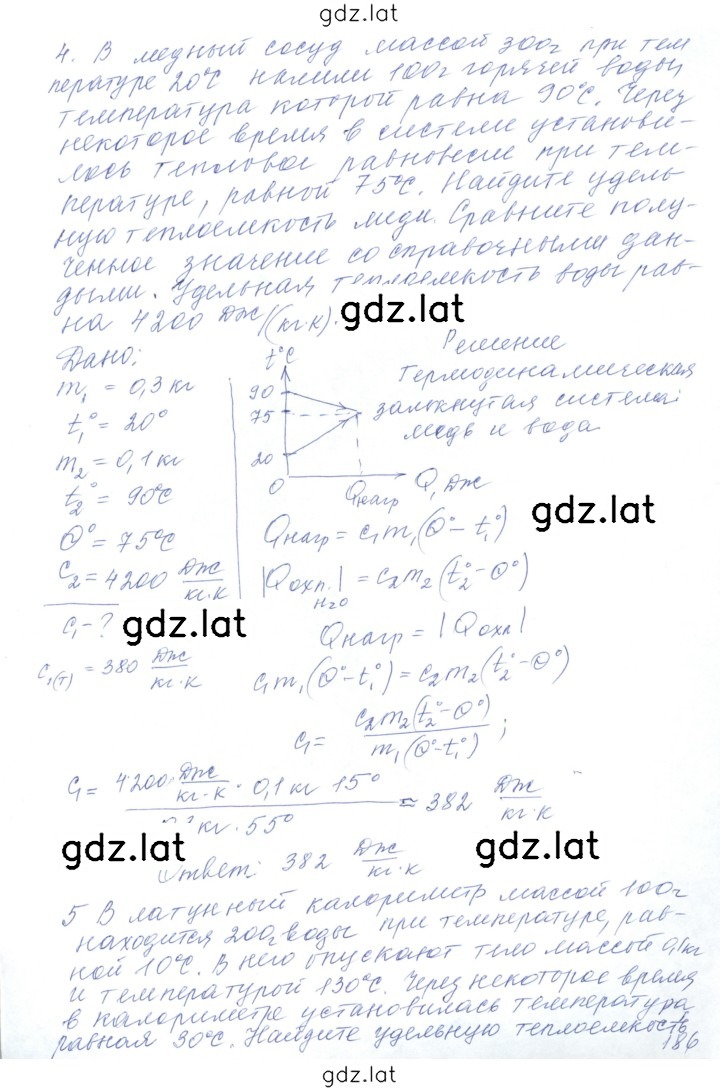 gdz.lat
4. В медный сосуд массой 300г при тем
пературе 20°С налили 100г горячей воды,
температура которой равна 90°С. Через
некоторое время в системе установи-
лось тепловое равновесие при тем-
пературе, равной 75°С. Найдите удель
ную теплоемкость меди. Сравните полу-
ченное значение со справочными дан-
дыми. Удельная теплоемкость воды рав-
на 4200 Дж/(кг·К). gdz.lat
Дано: t°C Решение
m₁ = 0,3 кг 90 Термодинамическая
t₁° = 20° 75 замкнутая система:
медь и вода
m₂ = 0,1 кг 20
t₂° = 90°С 0 Qнагр Q, Дж
gdz.lat
Θ° = 75°С Qнагр = c₁m₁(Θ° - t₁°)
c₂ = 4200 Дж/кг·К |Qохл.| = c₂m₂(t₂° - Θ°)
H₂O
c₁ - ? gdz.lat Qнагр = |Qохл|
c₁(т) = 380 Дж/кг·К c₁m₁(Θ° - t₁°) = c₂m₂(t₂° - Θ°)
c₁ = c₂m₂(t₂° - Θ°)/m₁(Θ° - t₁°);
c₁ = 4200 Дж/кг·К · 0,1 кг 15°/кг · 55° ≈ 382 Дж/кг·К
gdz.lat gdz.lat
Ответ: 382 Дж/кг·К
5 В латунный калориметр массой 100г
находится 200г воды при температуре, рав-
ной 10°С. В него опускают тело массой 0,1кг
и температурой 130°С. Через некоторое время
в калориметре установилась температура,
равная 30°С. Найдите удельную теплоемкость
186
gdz.lat